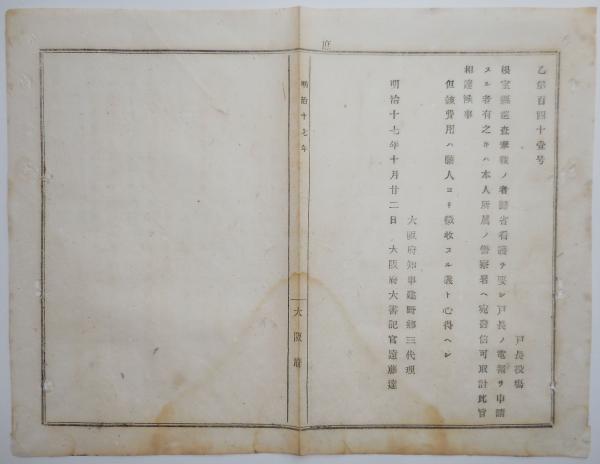 乙第百四十壹号
戸長役場
ノ者歸省看護ヲ要シ戸長ノ電報ヲ申請
スル者有之キハ本人所属ノ警察署ヘ宛發信可取計此旨
相達候事
但該費用ハ願人ヨリ徴收スル義ト心得ヘシ
大阪府知事建野郷三代理
明治十七年十月廿二日 大阪府大書記官遠藤達
明治十七年
大阪府